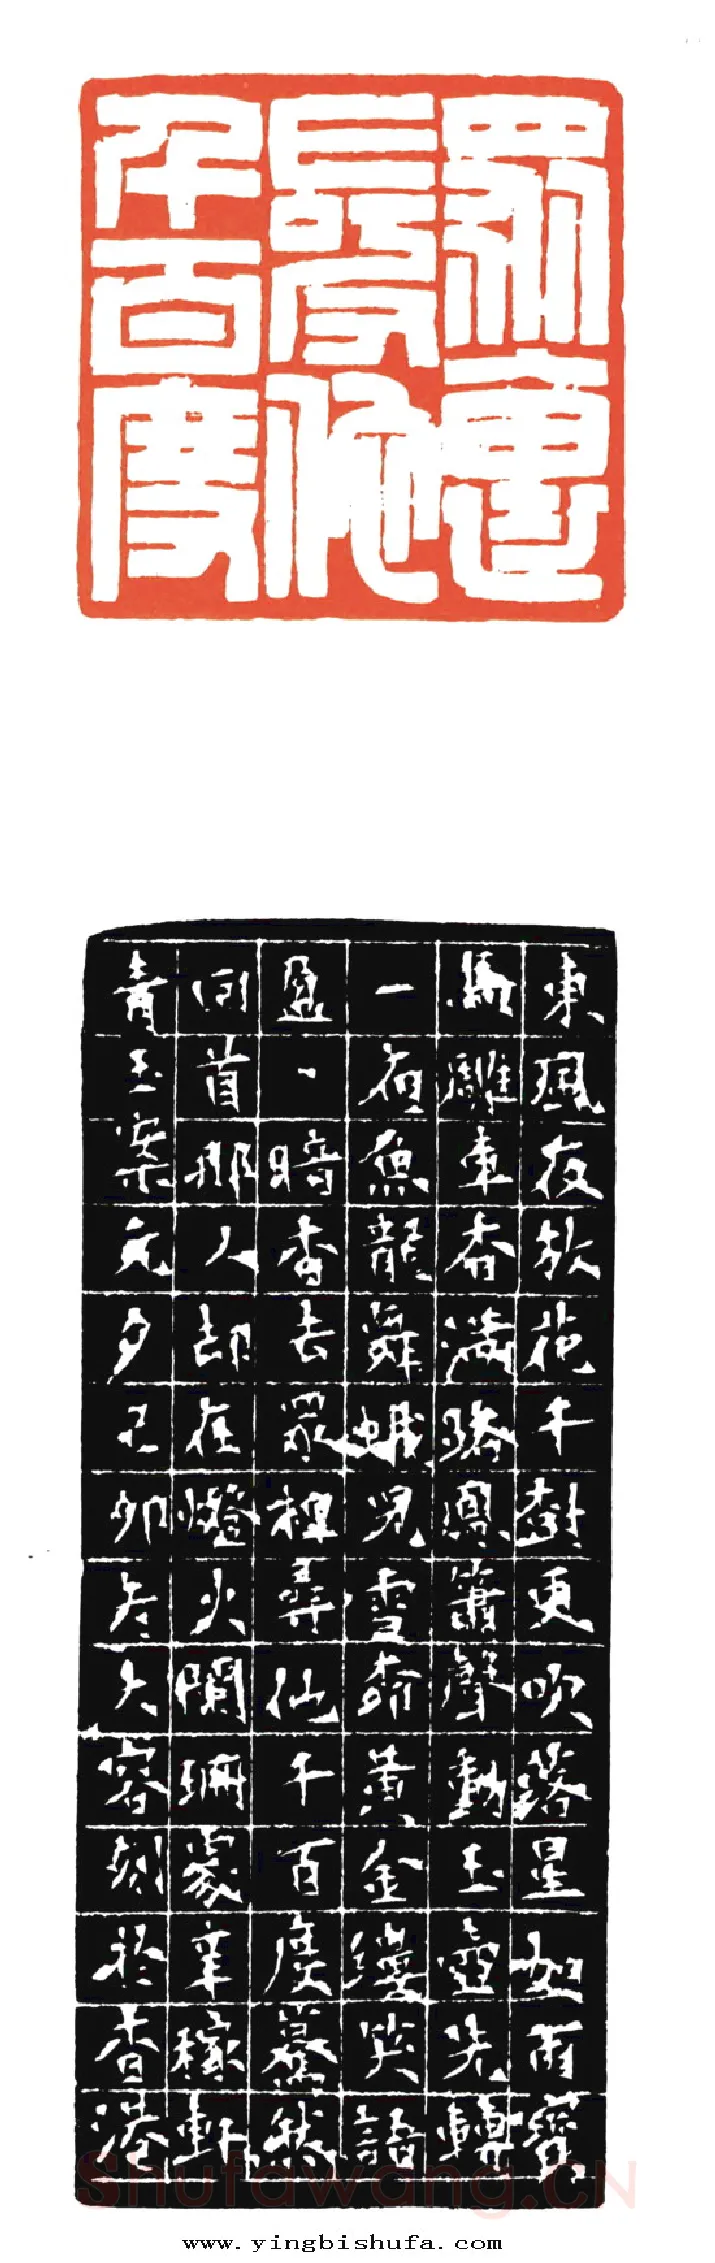 眾裏
尋他
千百度
東風夜放花千樹更吹落星如雨寶
馬雕車香滿路鳳簫聲動玉壺光轉
一夜魚龍舞蛾兒雪柳黃金縷笑語
盈丶暗香去眾裡尋他千百度驀然
回首那人却在燈火闌珊處辛稼軒
青玉案元夕己卯冬大容刻於香港
Shufawang.CN
www.yingbishufa.com